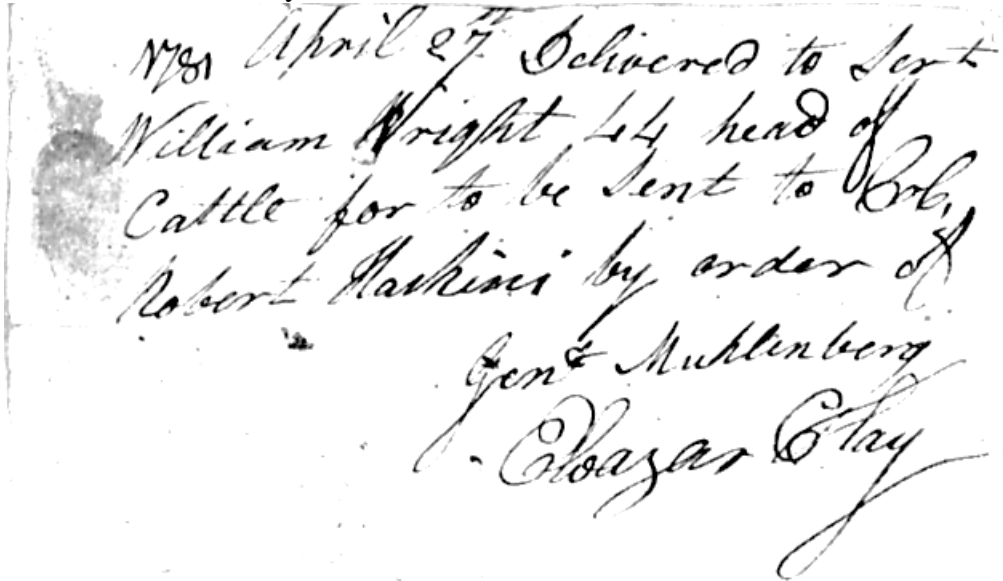 1781 April 27th Delivered to Sert
William Wright 44 head of
Cattle for to be Sent to Col.
Robert Haskins by order of
Genl Muhlenberg
Eleazar Clay